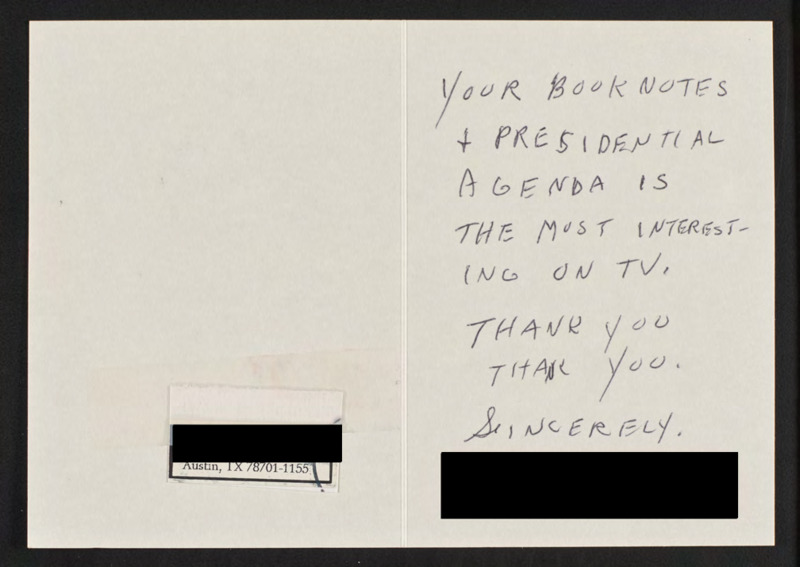 YOUR BOOKNOTES
+ PRESIDENTIAL
AGENDA IS
THE MOST INTEREST-
ING ON TV.
THANK YOU
THANK YOU.
SINCERELY.
Austin, TX 78701-1155